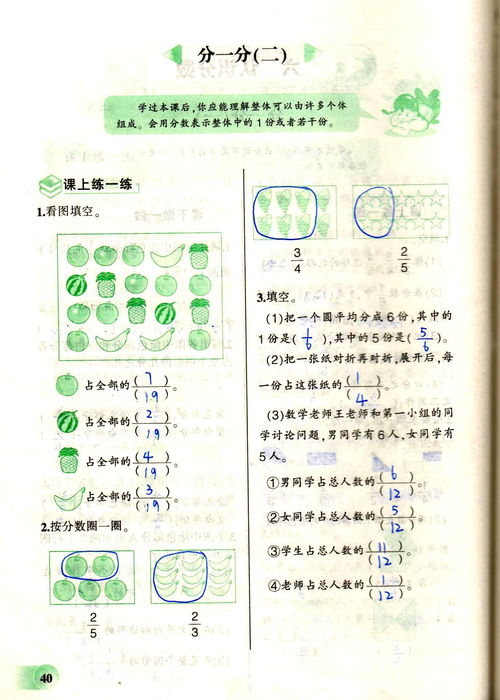 分一分(二)
学过本课后,你应能理解整体可以由许多个体
组成。会用分数表示整体中的1份或者若干份。
课上练一练
1.看图填空。
占全部的(7)/(19)。
占全部的(2)/(19)。
占全部的(4)/(19)。
占全部的(3)/(19)。
2.按分数圈一圈。
2/5 2/3
3/4 2/5
3.填空。
(1)把一个圆平均分成6份,其中的
1份是(1/6),其中的5份是(5/6)。
(2)把一张纸对折再对折,展开后,每
一份占这张纸的(1)/(4)。
(3)数学老师王老师和第一小组的同
学讨论问题,男同学有6人,女同学有
5人。
①男同学占总人数的(6)/(12)。
②女同学占总人数的(5)/(12)。
③学生占总人数的(11)/(12)。
④老师占总人数的(1)/(12)。
40